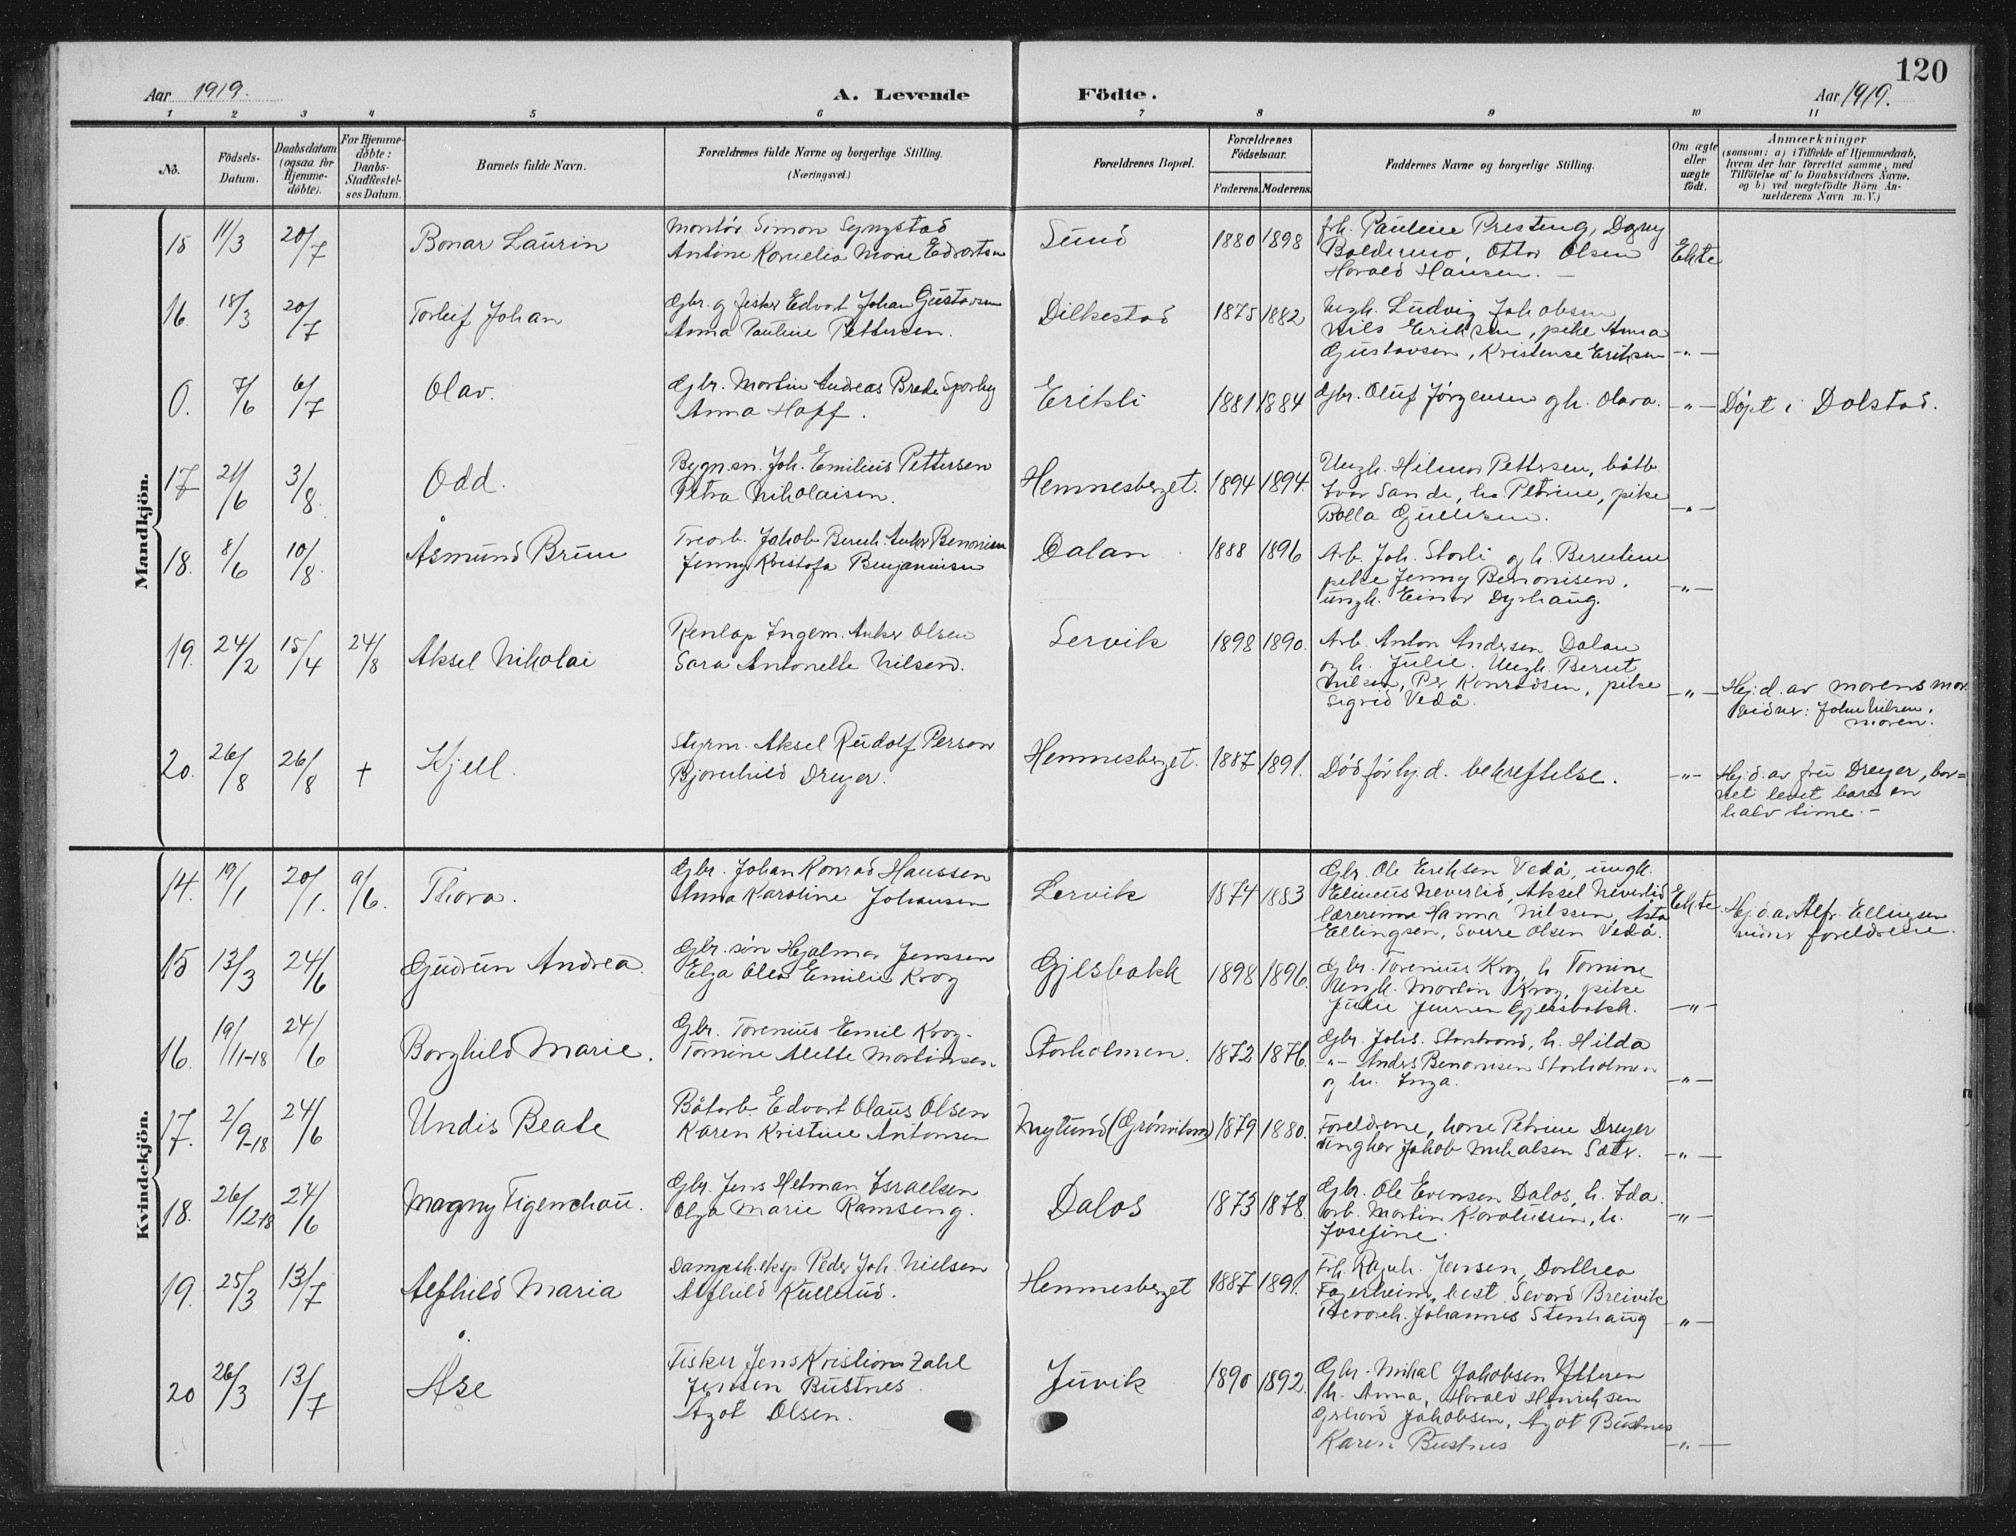 Aar 1919.
A. Levende Födte.
120
Aar 1919.
1 2 3 4 5 6 7 8 9 10 11
No.
Födsels-Datum.
Daabsdatum (ogsaa for Hjemmedöbte).
For Hjemmedöbte: Daabs-Stadfæstelses Datum.
Barnets fulde Navn.
Forældrenes fulde Navne og borgerlige Stilling.
(Næringsvei.)
Forældrenes Bopæl.
Forældrenes Födselsaar.
Faderens. Moderens.
Faddernes Navne og borgerlige Stilling.
Om ægte eller uægte födt.
Anmærkninger
(saasom: a) i Tilfælde af Hjemmedaab,
hvem der har forrettet samme, med
Tilföielse af to Daabsvidners Navne,
og b) ved uægtefödte Börn Anmelderens Navn m. V.)
Mandkjön.
15 11/3 20/7 Bonar Laurin
Montør Simon
Antone Kornelia Marie Edvartsen
Sund 1880 1898
frk. Pauline Presteng, Dagny
Baldermo, Ottar Olsen
Harald Hansen. —
Ekte
16. 18/3 20/7 Torleif Johan
Gbr. g fisker Edvart Johan Gustavsen
Anna Pauline Pettersen.
Dilkestad 1875 1882
Ungk. Ludvig Jakobsen
Nils Eriksen, pike Anna
Gustavsen, Kristense Eriksen
-"-
0. 7/6 6/7 Olav.
Gbr. Martin Andreas Brede Sporby
Anna Hopf.
Erikli 1881 1884
Gbr. Oluf Jørgensen g h. Olava.
-"-
Døpt i Dolstad.
17 21/6 3/8 Odd.
Bygn.sn. Joh. Emilius Pettersen
Petra Nikolaisen.
Hemnesberget. 1894 1894.
Ungk. Hilmar Pettersen, båtb.
Ivar Sande, h. Petrine, pike
Bolla
-"-
18. 8/6 10/8 Åsmund Bruu
Trearb. Jakob Bernh. Anker Benonisen
Jenny Kristofa Benjaminsen
Dalan 1888 1896
Arb. Joh. Storli og h. Berntine
pike Jenny Benonisen.
ungk. Einar Dyrhaug.
-"-
19. 24/2 15/4 24/8 Aksel Nikolai
Renlap Ingem. Anker Olsen
Sara Antonette Nilsen.
Lervik 1898 1890.
Arb. Anton Andersen Dalan
og h. Julie. Ungk. Bernt
Nilsen, Per Konradsen, pike
Sigrid Vedå.
-"-
Hej. d. av morens mor
vidner: John Nilsen.
moren.
20. 26/8 26/8 + Kjell.
Styrm. Aksel Rudolf Person
Bjørnhild Dreyer.
Hemnesberget. 1887 1891.
Død før hj. d. bekreftelse.
-"-
Hej. d. av fru Dreyer, barnet
levet bare en
halv time. —
Kvindekjön.
14. 19/1 20/1. 9/6. Thora.
Gbr. Johan Konrad Hanssen
Anna Karoline Johansen
Lervik 1874 1883
Gbr. Ole Eriksen Vedå, ungk.
Elinius Neverlid, Aksel Neverlid
lærerinne Hanna Nilssen, Asta
Ellingsen, Sverre Olsen Vedå.
Ekte
Hej. d. av Alfr. Ellingsen
vidner foreldrene.
15 13/3 24/6 Gudrun Andrea.
Gbr. søn Hjalmar Jenssen
Elza Olea Emilie Krog
Gjesbakk 1898 1896.
Gbr. Torenius Krog, h Tomine
Ungk. Martin Krog, pike
Julie Jensen Gjesbakk.
-"-
16. 19/11-18 24/6 Borghild Marie.
Gbr. Torenius Emil Krog.
Tomine Alette Martinsen.
Storholmen. 1872 1876.
Gbr. Johs. Storstrand, h. Hilda
-"- Anders Benonisen Storholmen
og h. Inga.
-"-
17. 2/9-18 24/6 Undis Beate
Båtarb. Edvart Olaus Olsen
Karen Kristine Antonsen
Nylund (Grønvikmo) 1879 1880.
Foreldrene, kone Petrine Dreyer
ungkar Jakob Mikalsen Sætr.
-"-
18. 26/12-18 24/6 Magny Figenchau.
Gbr. Jens Hetman Israelsen
Olga Marie Ramseng.
Dalos 1873 1878.
Gbr. Ole Evensen Dalos, h. Ida
arb. Martin Karolussen, h.
Josefine.
-"-
19. 25/3 13/7 Alfhild Maria
Dampsk. eksp. Peder Joh. Nielsen
Alfhild Kullerud.
Hemnesberget 1887 1891.
Frk. Ragnh. Jensen, Dorthea
Fagerheim, best. Sevard Breivik
Johannes Stenhaug
-"-
20 26/3 13/7 Åse
Fisker Jens Kristian Zahl
Jensen Bustnes.
Agot Olsen.
Juvik 1890 1892.
Gbr. Mikal Jakobsen Ytteren
h. Anna, Harald Henriksen
Gerhard Jakobsen, Agot Bustnes
Karen Bustnes
-"-